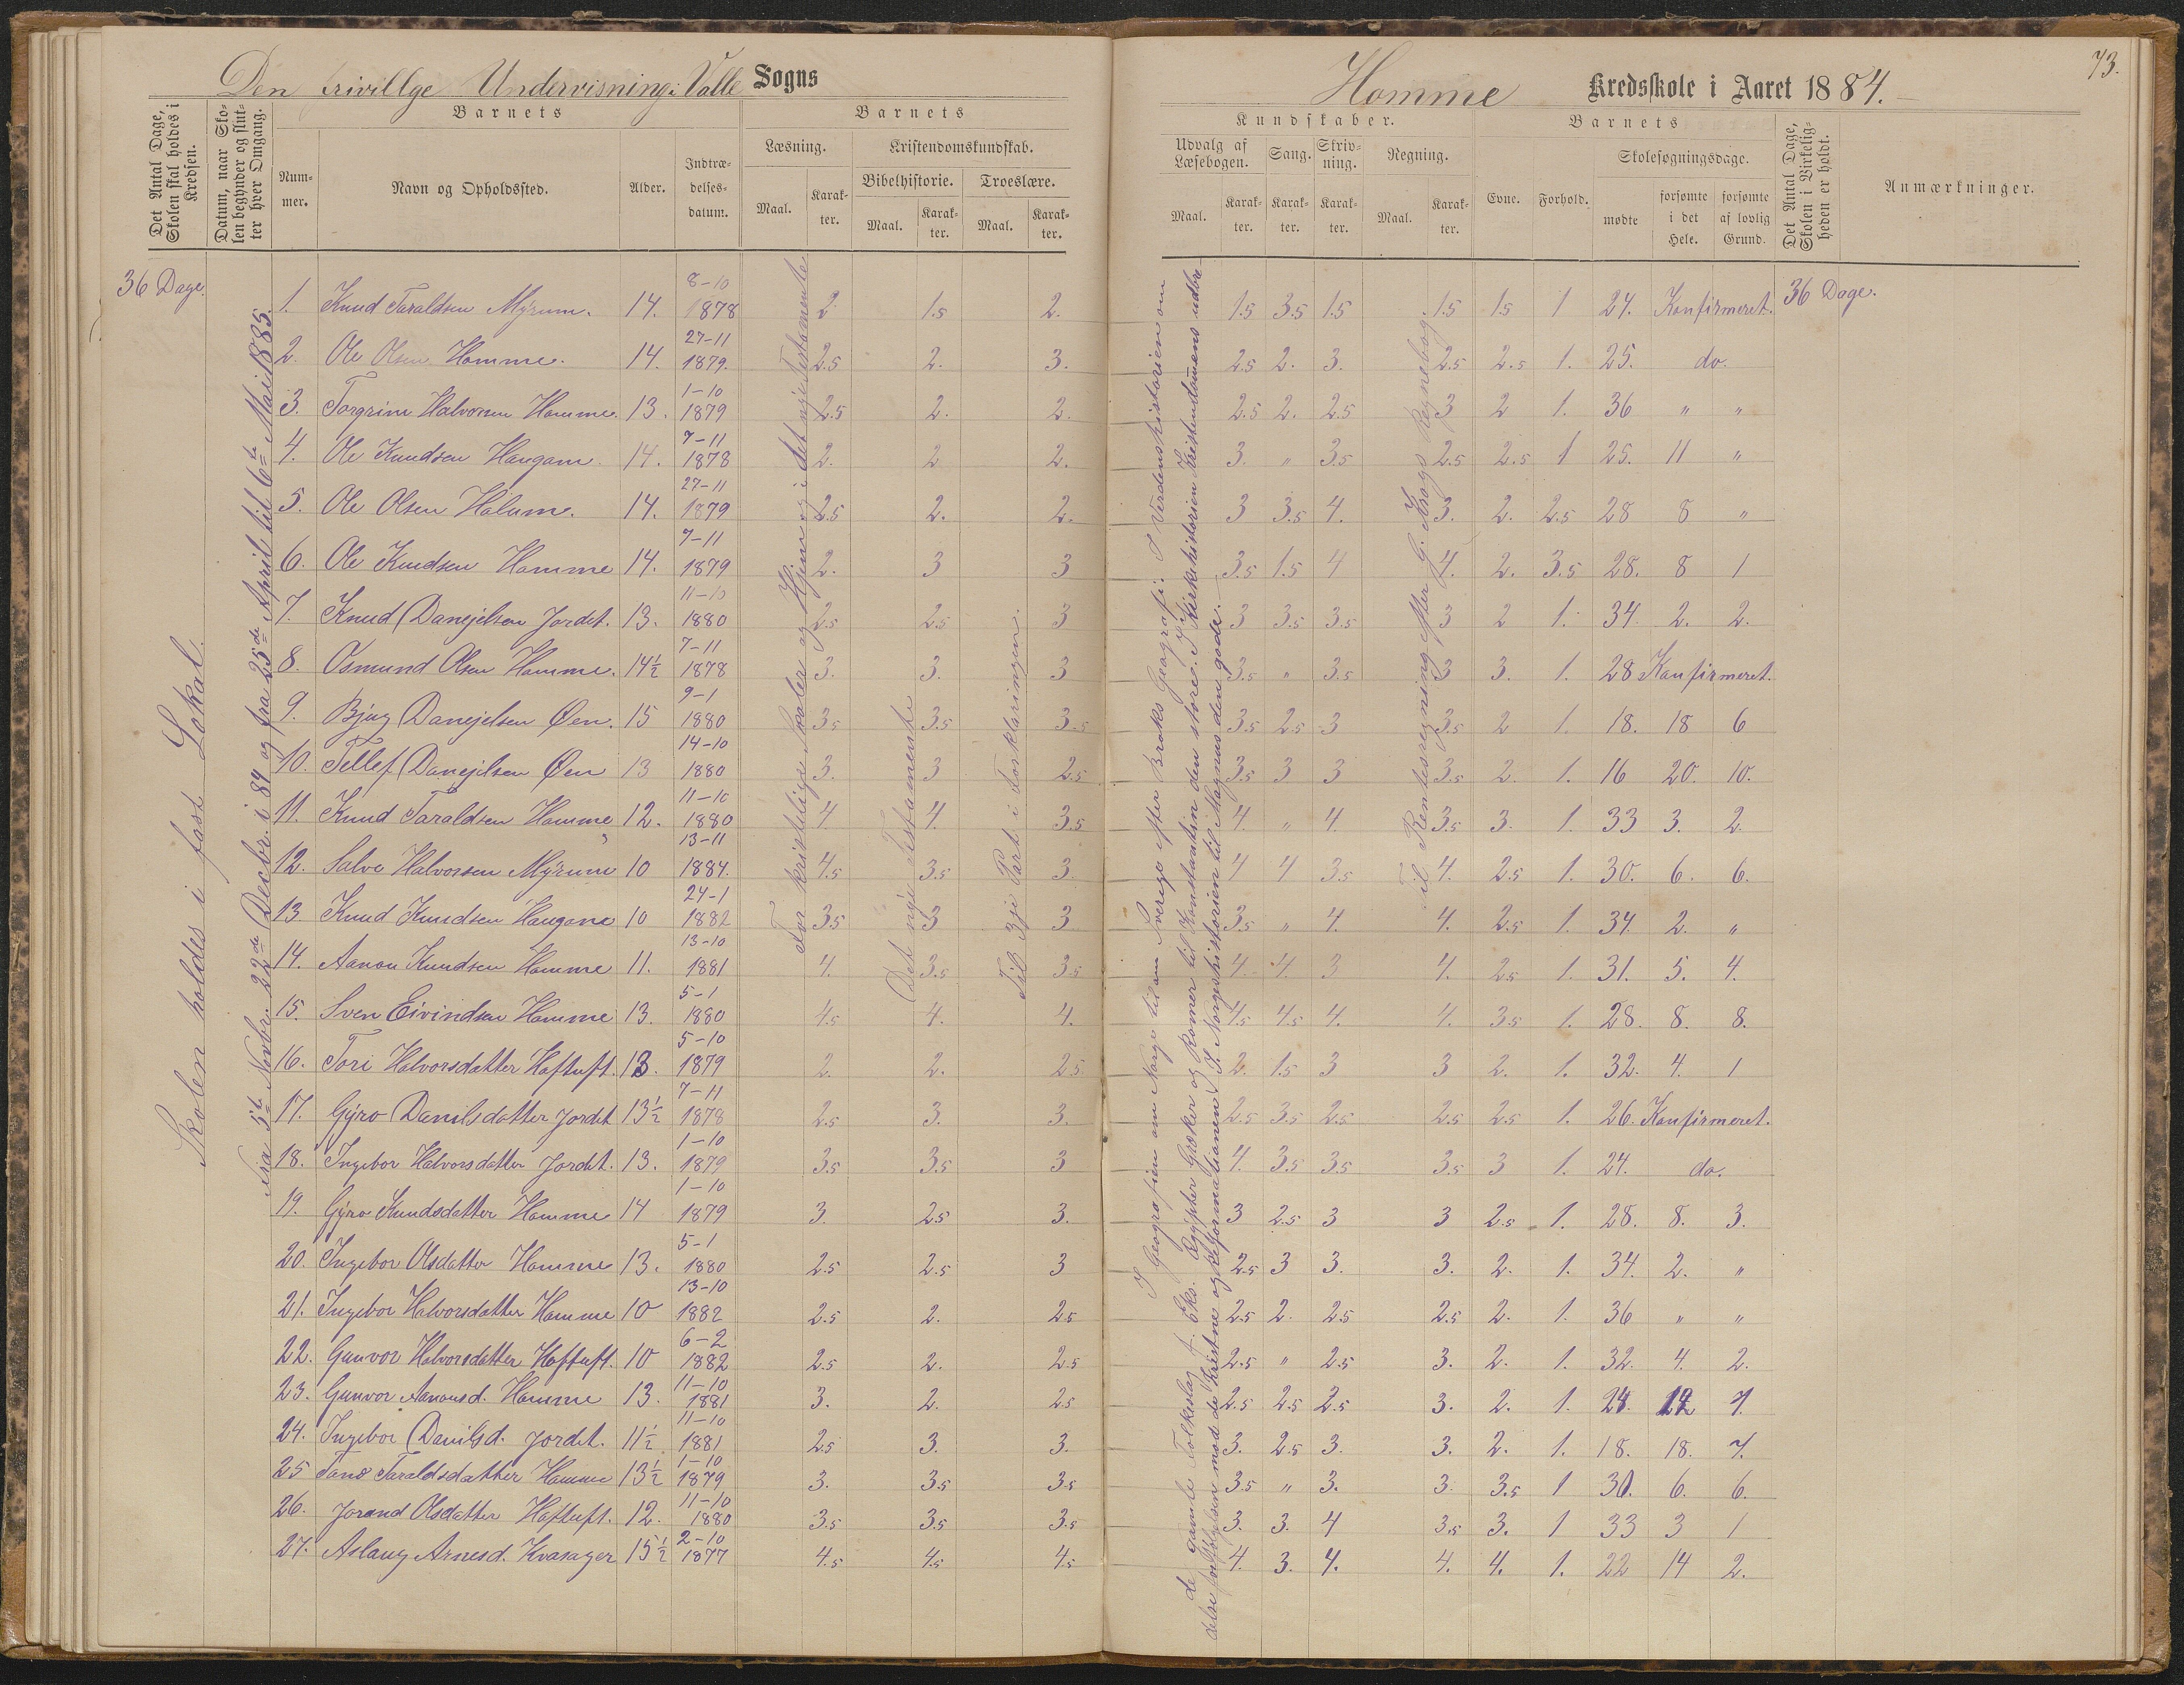 Den frivillge Undervisning i Valle Sogns
Homme Kredsskole i Aaret 1884.
73.
Det Antal Dage, Skolen skal holdes i Kredsen.
Datum, naar Skolen begynder og slutter hver Omgang.
Barnets
Barnets
Nummer.
Navn og Opholdssted.
Alder.
Indtrædelsesdatum.
Læsning.
Kristendomskundskab.
Bibelhistorie.
Troeslære.
Maal. Karakter. Maal. Karakter. Maal. Karakter.
Kundskaber.
Barnets
Udvalg af Læsebogen.
Sang.
Skrivning.
Regning.
Evne.
Forhold.
Skolesøgningsdage.
Maal. Karakter. Karakter. Karakter. Maal. Karakter.
mødte
forsømte i det Hele.
forsømte af lovlig Grund.
Det Antal Dage, Skolen i Virkeligheden er holdt.
Anmærkninger.
36 Dage.
36 Dage.
Skolen holdes i fast Lokal.
Fra 5te Novbr. 22de Decbr. i 84 og fra 25de April til 6te Mai 1885.
For kristelige Skoler og Hjem og i det nye Testamente
Det nye Testamente
Til 3je Part i Forklaringen.
I Geografien om Norge til om Sverige efter Broks Geografi. I Verdenshistorien om
de gamle Folkeslag f. Eks. Egypter Græker og Romer til Konstantin den store. I Kirkehistorien Kristendomens udbre-
delse forfølgelsen mod de kristne og Reformationen I Norgeshistorien til Magnus den gode.
Til Rentesregning efter G. Krogs Regnebog.
1. Knud Taraldsen Myrum. 14. 8-10 1878 2 1.5 2. 1.5 3.5 1.5 1.5 1.5 1 24. Konfirmeret.
2. Ole Olsen Homme. 14. 27-11 1879. 2.5 2. 3. 2.5 2. 3. 2.5 2.5 1. 25. do.
3. Torgrim Halvorsen Homme. 13. 1-10 1879 2.5 2. 2. 2.5 2. 2.5 3 2 1. 36 " "
4. Ole Knudsen Haugann. 14. 7-11 1878 2. 2 2. 3. " 3.5 2.5 2.5 1 25. 11 "
5. Ole Olsen Hølum. 14. 27-11 1879 2.5 2. 2. 3 3.5 4. 3. 2. 2.5 28 8 "
6. Ole Knudsen Homme 14. 7-11 1879 2. 3 3 3.5 1.5 4 4. 2. 3.5 28. 8 1
7. Knud Danejelsen Jordet. 13. 11-10 1880 2.5 2.5 3 3 3.5 3.5 3 2 1. 34 2. 2.
8. Osmund Olsen Homme. 14½ 7-11 1878 3. 3. 3 3.5 " 3.5 3 3. 1. 28 Konfirmeret.
9. Bjug Danejelsen Øen. 15 9-1 1880 3.5 3.5 3.5 3.5 2.5 3 3.5 2 1. 18. 18 6
10. Tellef Danejelsen Øen 13 14-10 1880 3. 3 2.5 3.5 3 3 3.5 2. 1. 16 20. 10.
11. Knud Taraldsen Homme 12. 11-10 1880 4. 4. 3.5 4. " 4. 3.5 3. 1. 33 3. 2.
12. Salve Halvorsen Myrum 10 13-11 1884. 4.5 3.5 3. 4 4 3.5 4. 2.5 1. 30. 6. 6.
13 Knud Knudsen Haugane 10 24-1 1882 3.5 3 3 3.5 " 4. 4. 2.5 1. 34. 2. "
14. Aanon Knudsen Homme 11. 13-10 1881 4. 3.5 3.5 4. 4. 3 4. 2.5 1. 31. 5. 4.
15. Sven Eivindsen Homme 13. 5-1 1880 4.5 4. 4. 4.5 4.5 4. 4. 3.5 1. 28. 8. 8.
16. Tori Halvorsdatter Hoftuft. 13. 5-10 1879 2. 2. 2.5 2. 1.5 3 3 2. 1. 32. 4. 1
17. Gyro Danilsdatter Jordet 13½ 7-11 1878 2.5 3. 3. 2.5 3.5 2.5 2.5 2.5 1. 26. Konfirmeret.
18. Ingebor Halvorsdatter Jordet. 13. 1-10 1879 3.5 3.5 3 4. 3.5 3.5 3.5 3 1. 24. do.
19. Gyro Knudsdatter Homme 14 1-10 1879 3. 2.5 3. 3 2.5 3 3 2.5 1. 28. 8. 3.
20. Ingebor Olsdatter Homme 13. 5-1 1880 2.5 2.5 3 2.5 3 3. 3. 2. 1. 34. 2. "
21. Ingebor Halvorsdatter Homme 10 13-10 1882 2.5 2. 2.5 2.5 2. 2.5 2.5 2. 1. 36 " "
22. Gunvor Halvorsdatter Hoftuft. 10 6-2 1882 2.5 2. 2.5 2.5 " 2.5 3. 2. 1. 32. 4. 2.
23. Gunvor Aanonsd. Homme 13. 11-10 1881 3. 2. 2.5 2.5 2.5 2.5 3. 2. 1. 24. 12 7.
24. Ingebor Danilsd. Jordet. 11½ 11-10 1881 2.5 3. 3. 3. 2.5 3. 3. 2. 1. 18. 18. 7.
25 Tone Taraldsdatter Homme 13½ 1-10 1879 3. 3.5 3.5 3.5 " 3. 3. 3.5 1 30. 6. 6.
26. Jorand Olsdatter Hoftuft. 12. 11-10 1880 3.5 3.5 3.5 3. 3. 4 3.5 3. 1 33 3 1
27. Aslaug Arnesd. Kvasager 15½ 2-10 1877 4.5 4.5 4.5 4. 3. 4. 4. 4. 1. 22 14 2.